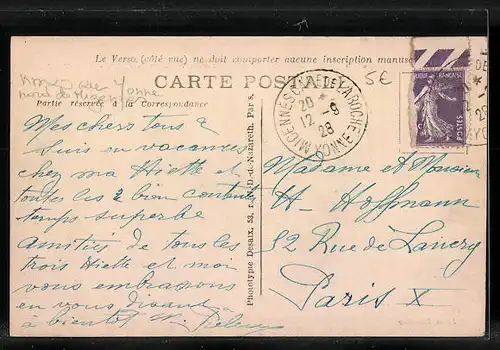 Le Verso (côté vue) ne doit comporter aucune inscription manus
CARTE POSTA
5€
Yonne
Partie réservée à la Correspondance
MIGENNES LAROCHE YONNE
20 *
12 - 9
28
RÉPUBLIQUE FRANÇAISE
POSTES
Mes chers tous 2
Suis en vacances
chez ma Hiette et
toutes les 2 bien contentes
temps superbe
amitiés de tous les
trois Hiette et moi
vous embrassons
en vous disant
à bientôt
Phototypie Desaix, 53, r. D.-d.-Nazareth, Par s.
Madame et Monsieur
H. Hoffmann
52 Rue de Lancry
Paris X